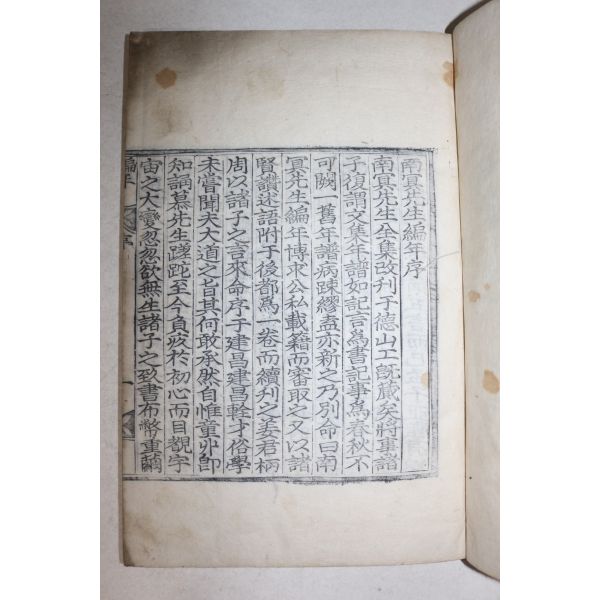 南冥先生編年序
南冥先生全集改刊于德山工旣蕆矣將事諸
子復謂文集年譜如記言爲書記事爲春秋不
可闕一舊年譜病踈繆盍亦新之乃別命曰南
冥先生編年博求公私載籍而審取之又以諸
賢讚述語附于後都爲一卷而續刊之姜君柄
周以諸子之言來命序于建昌建昌輇才俗學
未嘗聞夫大道之旨其何敢承然自惟童丱卽
知誦慕先生蹉跎至今負疚於初心而目覩宇
宙之大變忽忽欲無生諸子之致書布幣重繭
編年
序
一